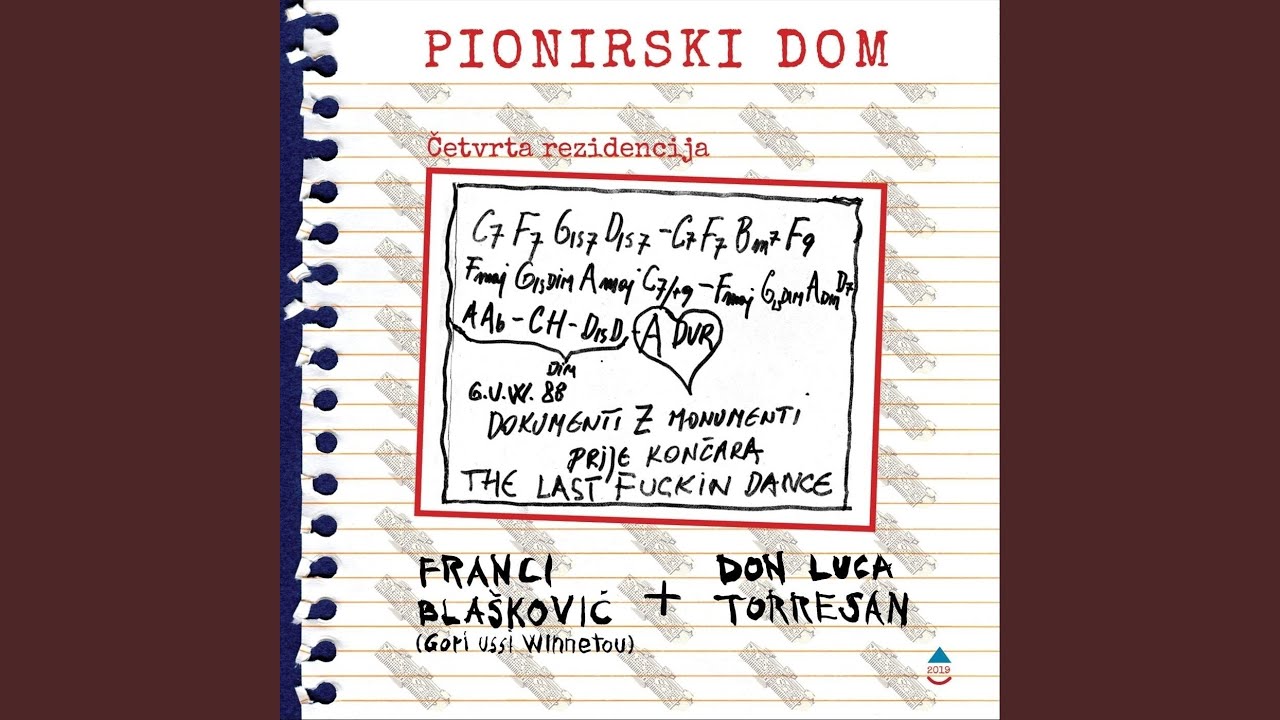 PIONIRSKI DOM
Četvrta rezidencija
C7 F7 Gis7 Dis7 - C7 F7 Bm7 F9
Fmaj GisDIM Amaj C7/+9 - Fmaj GisDIM ADM D7
AAb - CH - DisD - A DUR
DIM
G.U.W. 88
DOKUMENTI Z MONUMENTI
PRIJE KONČARA
THE LAST FUCKIN DANCE
FRANCI
BLAŠKOVIĆ
(Gori ussi Winnetou)
+
DON LUCA
TORRESAN
2019